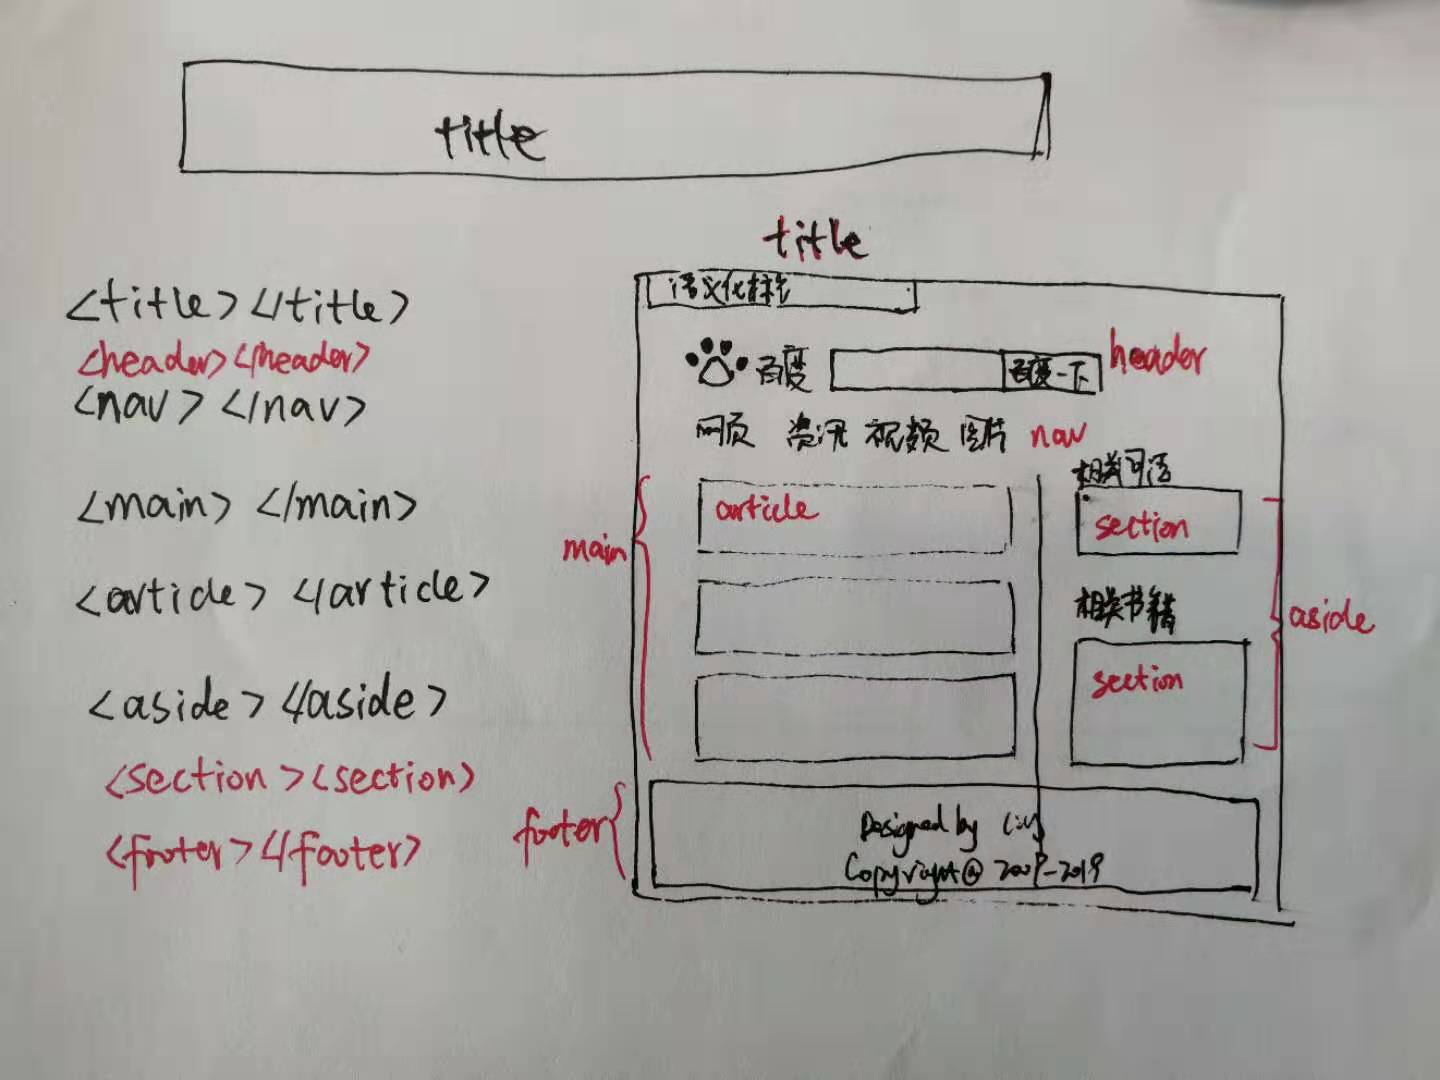 title
title
<title></title>
<header></header>
<nav></nav>
<main></main>
<article></article>
<aside></aside>
<section><section>
<footer></footer>
语义化标签
百度
百度一下
header
网页 资讯 视频 图片 nav
main
article
相关词语
section
相关书籍
section
aside
footer
Designed by
Copyright@ 2009-2019